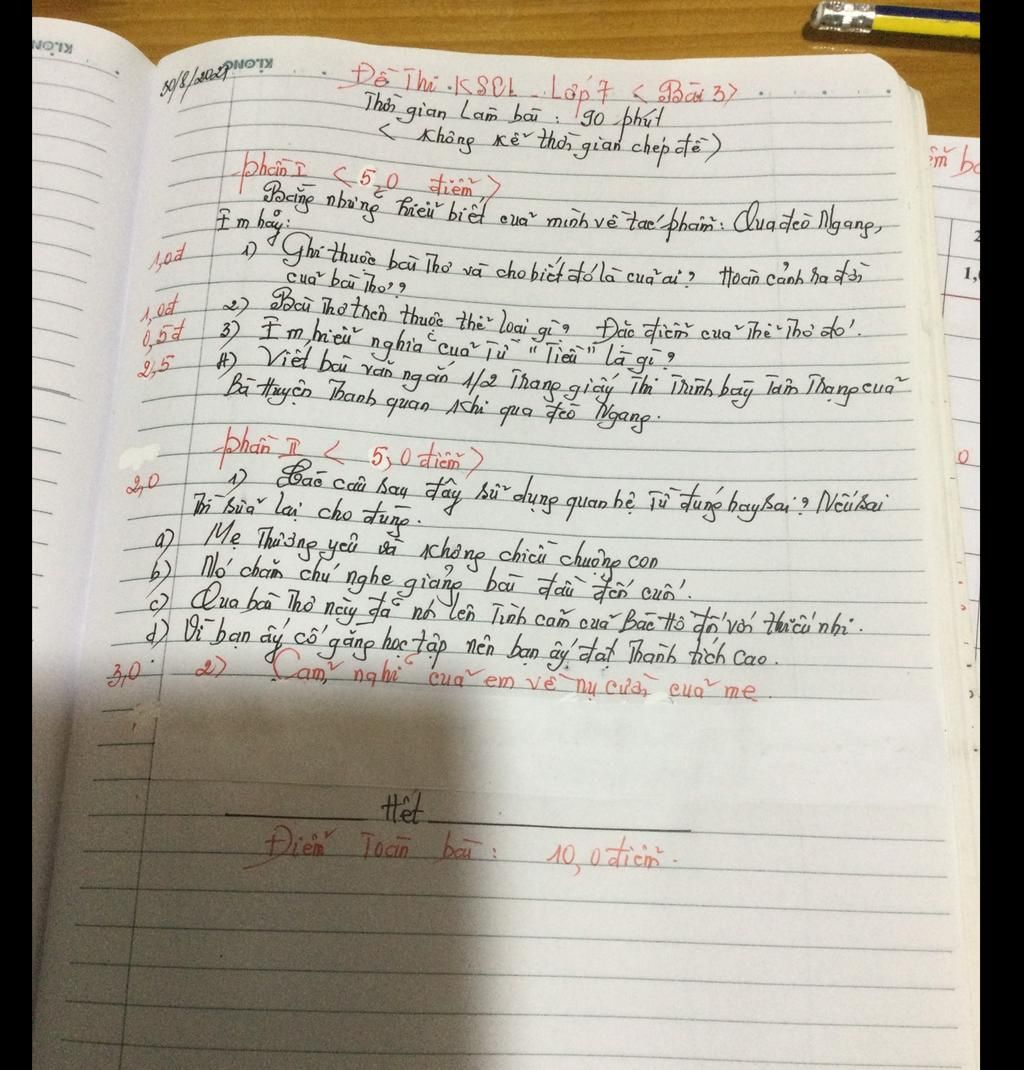 KLONG
KLONG
30/8/2021
Đề Thi KSCL - Lớp 7 < Bài 3>
Thời gian Làm bài : 90 phút
< không kể thời gian chép đề )
phần I < 5,0 điểm >
Bằng những hiểu biết của mình về tác phẩm: Qua đèo Ngang,
Em hãy:
1,0đ 1) Ghi thuộc bài Thơ và cho biết đó là của ai? Hoàn cảnh ra đời
của bài Thơ??
1,0đ 2) Bài Thơ trên thuộc thể loại gì? Đặc điểm của Thể Thơ đó.
0,5đ 3) Em hiểu nghĩa của Từ "Tiều" Là gì?
2,5 4) Viết bài văn ngắn 1/2 Trang giấy Thi Trình bày Tâm Trạng của
Bà Huyện Thanh quan khi qua đèo Ngang.
phần II < 5,0 điểm >
2,0 1) Các câu sau đây sử dụng quan hệ Từ đúng hay sai? Nếu sai
Thì sửa lại cho đúng.
a) Mẹ Thương yêu và không chiều chuộng con
b) Nó chăm chú nghe giảng bài đầu đến cuối.
c) Qua bài Thơ này đã nói lên Tình cảm của Bác Hồ đối với thiếu nhi.
d) Vì bạn ấy cố gắng học tập nên bạn ấy đạt Thành tích cao.
3,0 2) Cảm nghĩ của em về nụ cười của mẹ.
Hết
Điểm Toàn bài : 10,0 điểm.